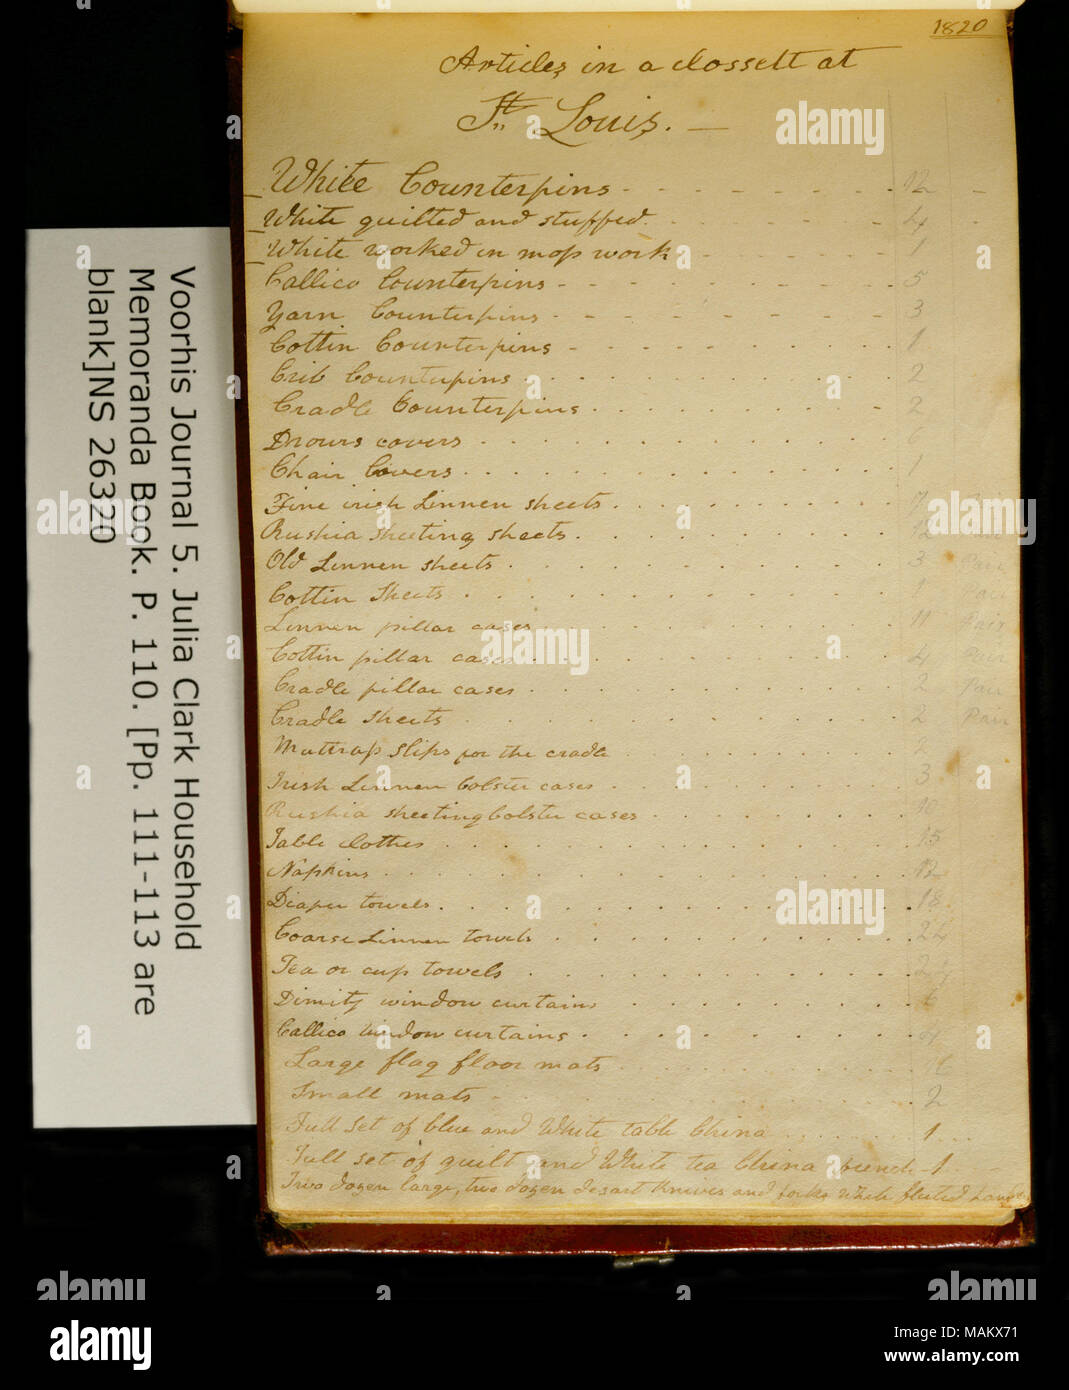 1820
Articles in a clossett at
St. Louis. —
White Counterpins 12
White quilted and stuffed. 4
White worked in mop work 1
Callico Counterpins 5
Yarn Counterpins 3
Cottin Counterpins 1
Crib Counterpins 2
Cradle Counterpins 2
Drours covers 6
Chair Covers 1
Fine irish Linnen sheets 7
Rushia sheeting sheets 12
Old Linnen sheets 3 Pair
Cottin Sheets 1 Pair
Linnen pillar cases 11 Pair
Cottin pillar cases 4 Pair
Cradle pillar cases 2 Pair
Cradle sheets 2 Pair
Mattrass slips for the cradle 2
Irish Linnen bolster cases 3
Rushia sheeting bolster cases 10
Table clothes 15
Napkins 12
Diaper towels 18
Coarse Linnen towels 24
Tea or cup towels
Dimity window curtains 6
Callico window curtains
Large flag floor mats 16
Small mats 2
Full set of blue and White table China 1
Full set of guilt and White tea China 1
Two dozen large, two dozen desart Knives and forks White fluted
Voorhis Journal 5. Julia Clark Household
Memoranda Book. P. 110. [Pp. 111-113 are
blank]NS 26320
alamy
Image ID: MAKX71
www.alamy.com